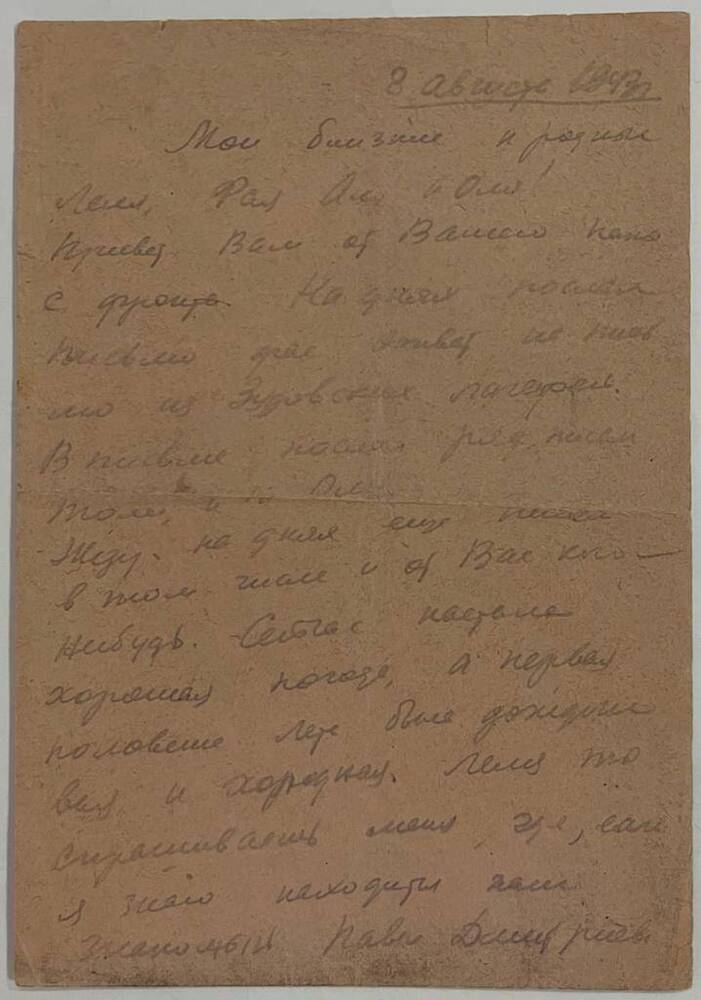 8 августа 1943 г
Мои близкие и родные
Леля, Рая Аля и Оля!
Привет Вам от Вашего папы
с фронта. На днях послал
письмо
из лагерей.
В письме послал ряд писем
Толи, и
Жду. на дня еще писем
в том числе и от Вас кто-
нибудь. Сейчас настала
хорошая погода, а первая
половине лета была дождли
вая и холодная. Леля ты
спрашиваешь меня, где, если
я знаю находится наш
знакомый Павел Дмитриев